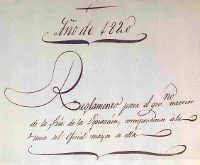 Año de 1820
Reglamento para el govno. interior
de la Secr. de la Governacion, correspondiente á la
mesa del Oficial mayor de ella